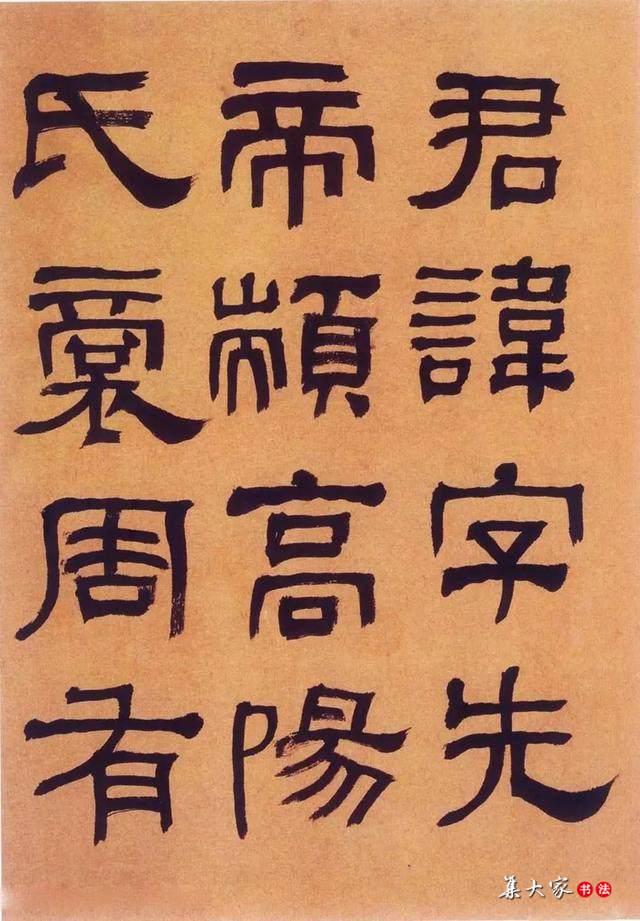 君諱字先
帝顓高陽
氏裔周有
集大家书法